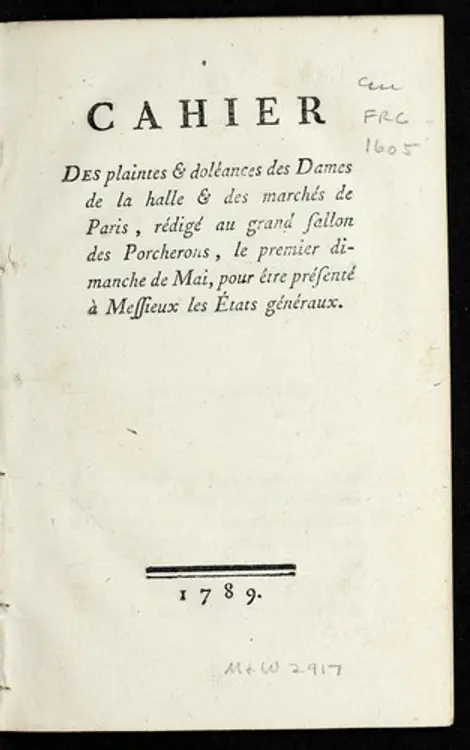 CAHIER
DES plaintes & doléances des Dames
de la halle & des marchés de
Paris, rédigé au grand ſallon
des Porcherons, le premier di-
manche de Mai, pour être préſenté
à Meſſieux les États généraux.
1789.
FRC
1605
M+W 2917